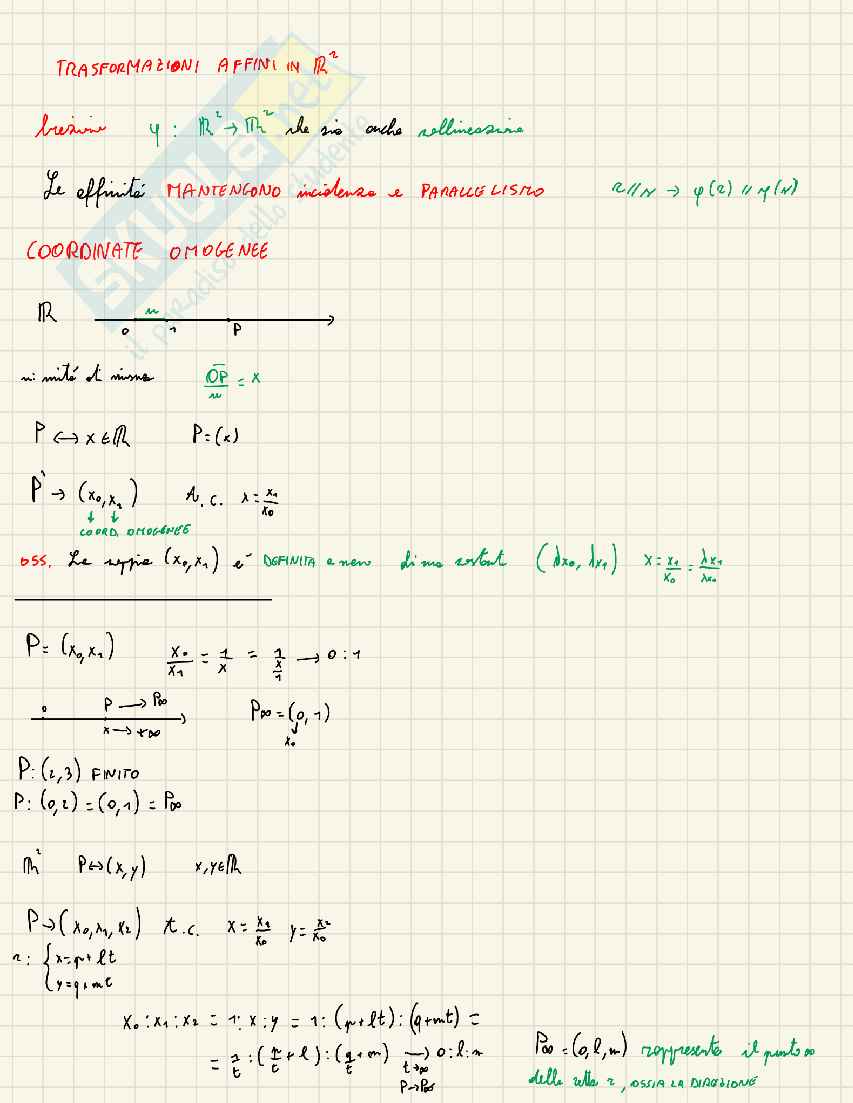 TRASFORMAZIONI AFFINI IN ℝ²
biezione φ : ℝ² → ℝ² che sia anche collineazione
Le affinità MANTENGONO incidenza e PARALLELISMO r//s → φ(r) // φ(s)
COORDINATE OMOGENEE
ℝ u
0 1 P
u: unità di misura OP/u = x
P ↔ x ∈ ℝ P=(x)
P → (x₀,x₁) t.c. x = x₁/x₀
COORD. OMOGENEE
OSS. La coppia (x₀,x₁) è DEFINITA a meno di una costant (λx₀, λx₁) x = x₁/x₀ = λx₁/λx₀
P= (x₀,x₁) x₀/x₁ = 1/x = 1/(x/1) → 0:1
0 P → P∞ P∞ = (0,1)
x → +∞ x₀
P: (2,3) FINITO
P: (0,2) = (0,1) = P∞
ℝ² P ↔ (x,y) x,y∈ℝ
P → (x₀,x₁,x₂) t.c. x = x₁/x₀ y = x₂/x₀
r: { x=p+lt
{ y=q+mt
x₀ : x₁ : x₂ = 1 : x : y = 1 : (p+lt) : (q+mt) =
= 1/t : (p/t + l) : (q/t + m) → 0 : l : m P∞ = (0,l,m) rappresenta il punto ∞
t→∞
P→P∞ della retta r, OSSIA LA DIREZIONE
SKUOLA.net
il paradiso dello studente